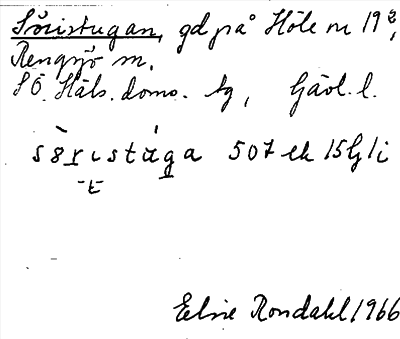 Söristugan, gd på Höle nr 19²,
Rengsjö sn.
SÖ. Häls. doms. tg, Gävl. l.
sèristúga 507 ek 15 G 1 i
Elsie Rondahl 1966